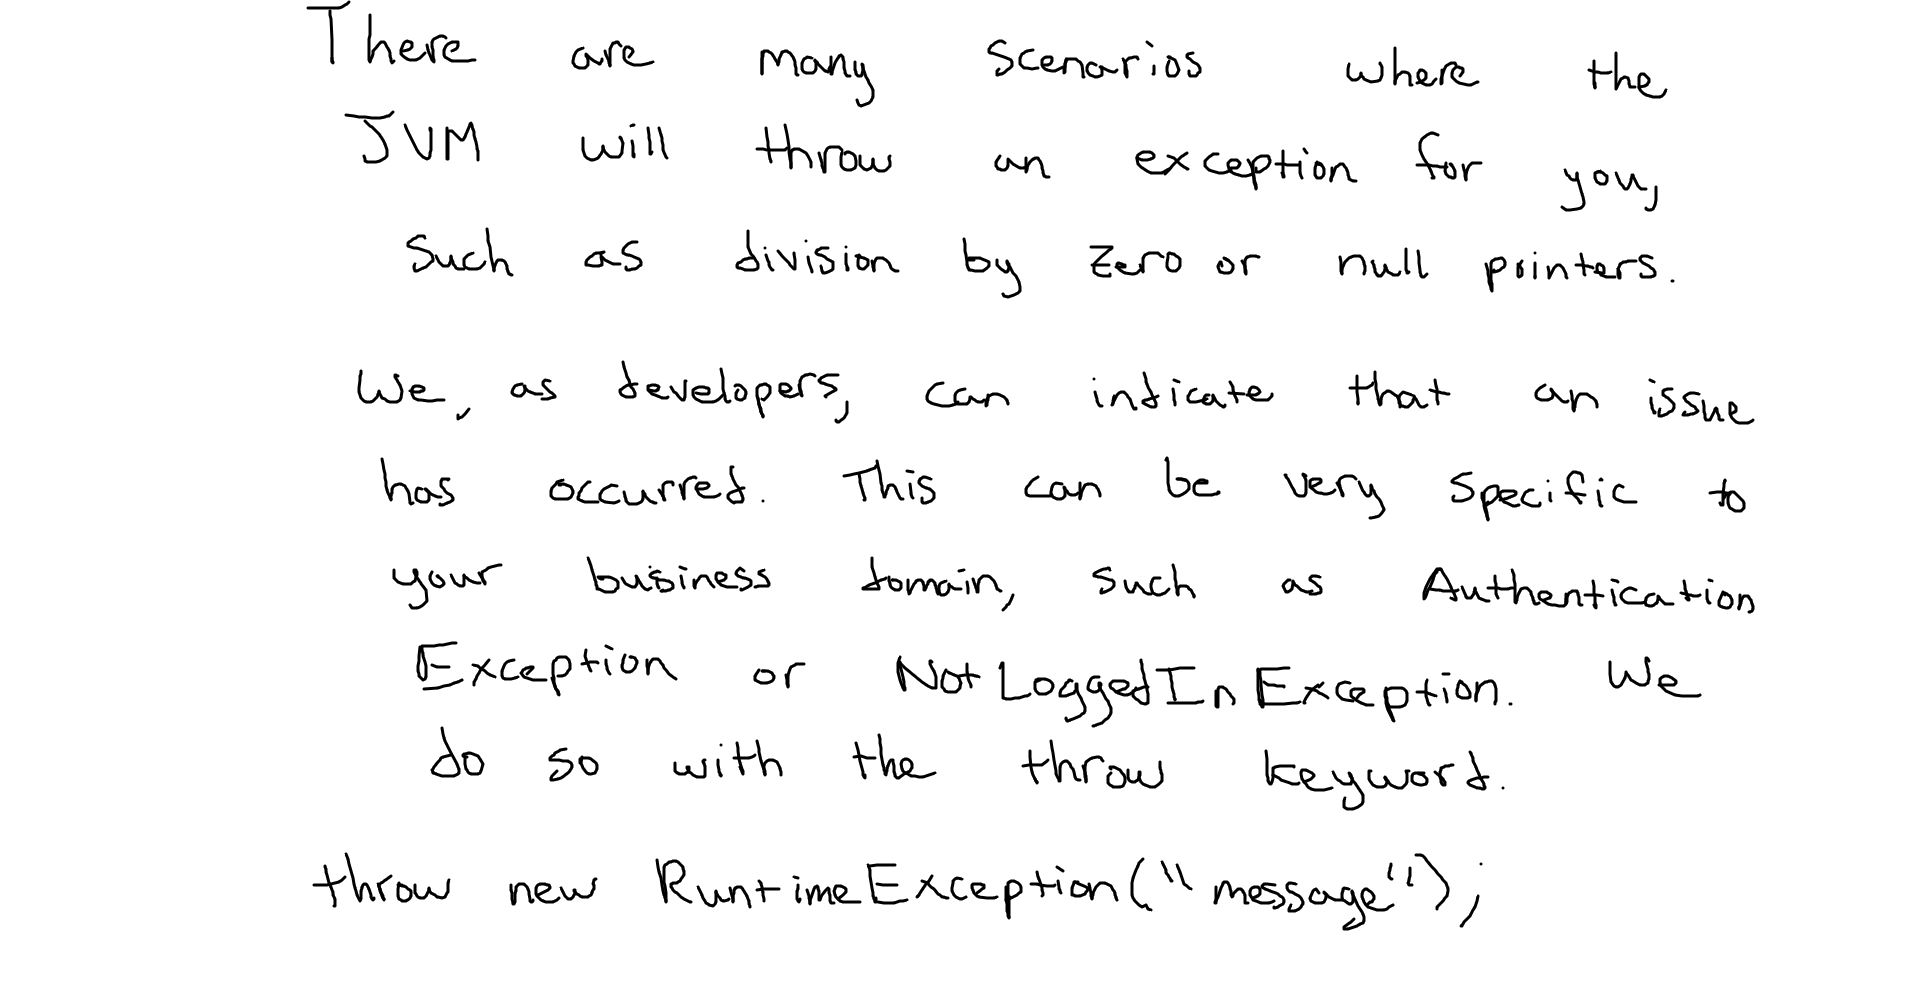 There are many scenarios where the
JVM will throw an exception for you,
such as division by zero or null pointers.
We, as developers, can indicate that an issue
has occurred. This can be very specific to
your business domain, such as Authentication
Exception or NotLoggedInException. We
do so with the throw keyword.
throw new RuntimeException("message");